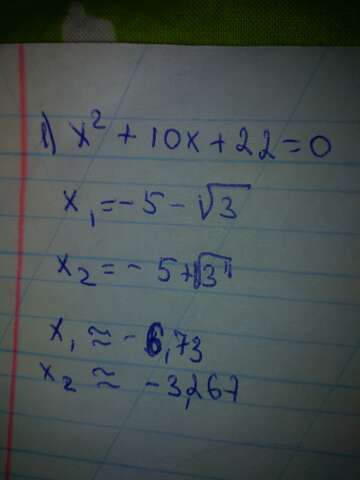 1) x² + 10x + 22 = 0
x₁ = -5 - √3
x₂ = -5 + √3
x₁ ≈ -6,73
x₂ ≈ -3,267